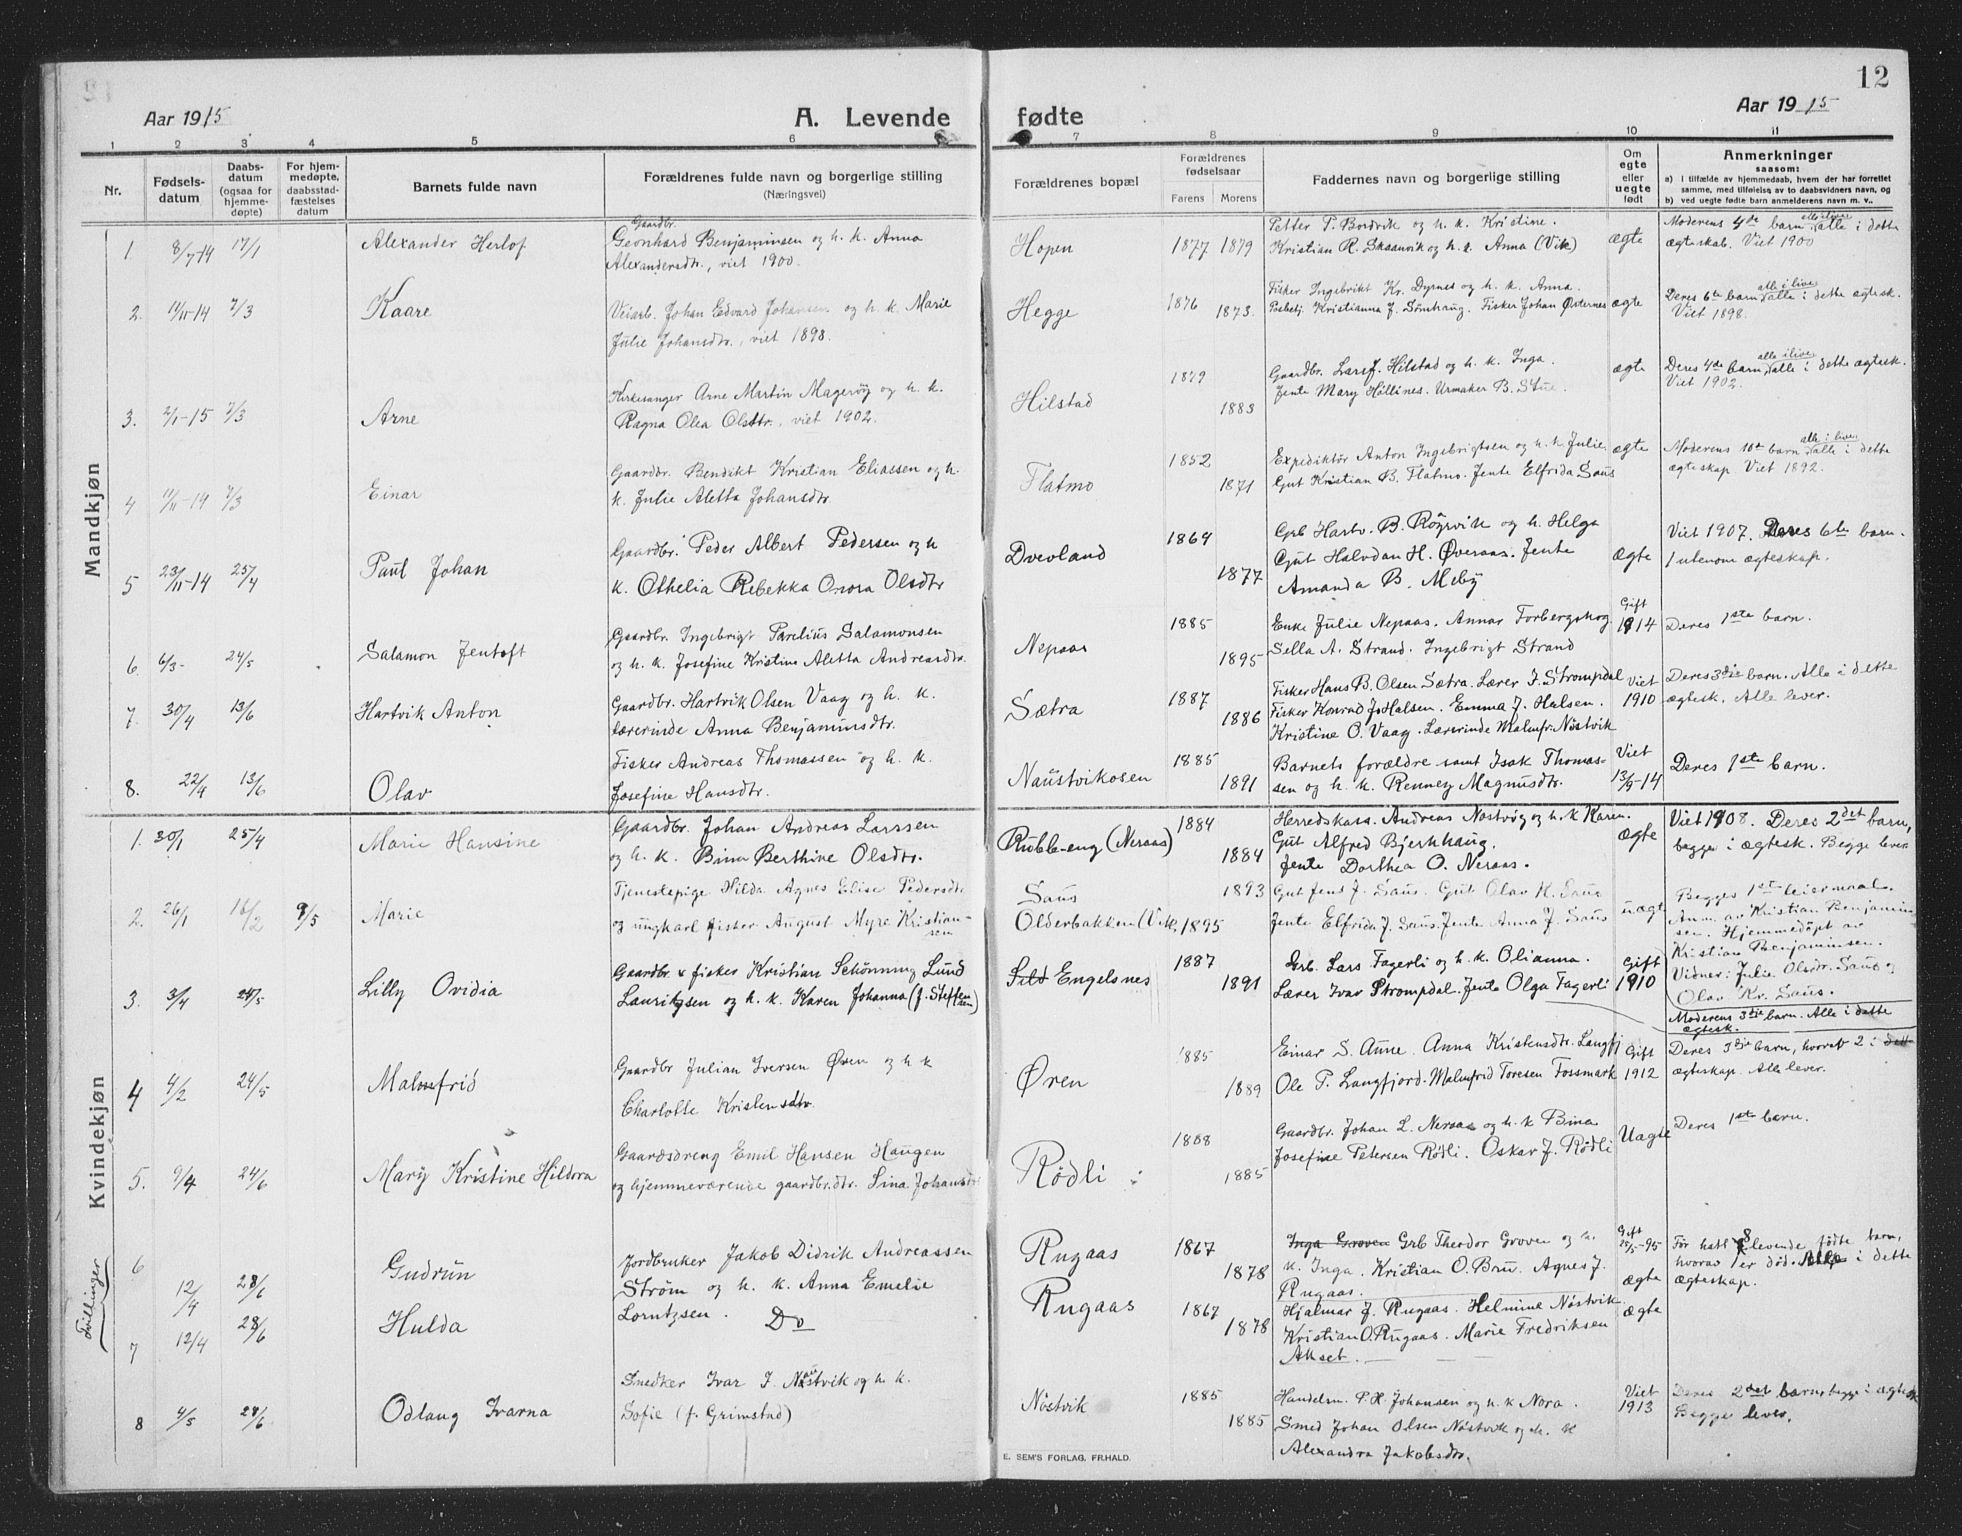 12
Aar 1915
A. Levende fødte
Aar 1915
1 2 3 4 5 6 7 8 9 10 11
Nr.
Fødsels-datum
Daabs-datum (ogsaa for hjemme-døpte)
For hjem-medøpte, daabsstad-fæstelses datum
Barnets fulde navn
Forældrenes fulde navn og borgerlige stilling
(Næringsvei)
Forældrenes bopæl
Forældrenes fødselsaar
Farens Morens
Faddernes navn og borgerlige stilling
Om egte eller uegte født
Anmerkninger
saasom:
a) i tilfælde av hjemmedaab, hvem der har forrettet samme, med tilføielse av to daabsvidners navn, og
b) ved uegte fødte barn anmelderens navn m. v..
Mandkjøn
1 8/7-14 17/1 Alexander Herlof
Gaardbr.
Geonhard Benjaminsen og h. k. Anna
Alexandersdtr., viet 1900.
Hopen 1877 1879
Petter P. Bordvik og h. k. Kristine.
Kristian R. Skaanvik og h. k. Anna (Vik)
ægte
Moderens 4de barn, alle i live alle i dette
ægteskab. Viet 1900
2. 11/11-14 7/3 Kaare
Veiarb. Johan Edvard Johansen og h. k. Marie
Julie Johansdtr., viet 1898.
Hegge 1876 1873.
Fisker Ingebrikt Kr. Dyrnes og h. k. Anna.
Kristianna J. Sønhaug. Fisker Johan Østernes
ægte
Deres 6te barn, alle i live alle i dette ægtesk.
Viet 1898.
3. 2/1-15 7/3 Arne
Kirkesanger Arne Martin Magerøy og h. k.
Ragna Olea Olsdtr., viet 1902.
Hilstad 1879 1883
Gaardbr. Hilstad og h. k. Inga.
Jente Mary Hollines. Urmaker B. Stue
ægte
Deres 4de barn, alle i live alle i dette ægtesk.
Viet 1902.
4 11/11-14 7/3 Einar
Gaardbr. Bendikt Kristian Eliassen og h.
k. Julie Aletta Johansdtr
Flatmo 1852 1871
Expeditør Anton Ingebrigtsen og h. k. Julie
Gut Kristian B. Flatmo. Jente Elfrida Saus
ægte
Moderens 10de barn, alle i live alle i dette
ægteskap Viet 1892.
5 23/11-14 25/4 Paul Johan
Gaardbr. Peder Albert Pedersen og h
k. Othelia Rebekka Onora Olsdtr
Drevland 1864 1877
Grb Hartv. B. Røyrvik og h. Helga
Gut Halvdan H. Øveraas. Jente
Amanda B. Meby
ægte
Viet 1907. Deres 6te barn.
1 utenom ægteskap.
6. 6/3- 24/5 Salamon Jentoft
Gaardbr. Ingebrigt Parelius Salamonsen
og h. k. Josefine Kristine Aletta Andreasdtr.
Nepaas 1885 1895
Enke Julie Nepaas. Annar Forbergskog
Sella A. Strand. Ingebrigt Strand
Gift 1914
Deres 1ste barn.
7. 30/4 13/6 Hartvik Anton
Gaardbr. Hartvik Olsen Vaag og h. k.
lærerinde Anna Benjaminsdtr.
Sætra 1887 1886
Fisker Hans B. Olsen Sætra. Lærer J. Strompdal
Fisker Konrad J. Halsen. Emma J. Halsen.
Kristine O. Vaag. Lærerinde Malmfr. Nøstvik
Viet 1910
Deres 3die barn. Alle i dette
ægtesk. Alle lever.
8. 22/4 13/6 Olav
Fisker Andreas Thomassen og h. k.
Josefine Hansdtr.
Naustvikosen 1885 1891
Barnets forældre samt Isak Thomas-
sen og h. k. Renney Magnusdtr.
Viet 13/9-14
Deres 1ste barn.
Kvindekjøn
1. 30/1 25/4 Marie Hansine
Gaardbr. Johan Andreas Larssen
og h. k. Bina Berthine Olsdtr.
Rubb-eng (Neraas) 1884 1884
Herredskass. Andreas Nøstvøg og h. k Karen.
Gut Alfred Bjerkhaug.
Jente Dorthea O. Neraas.
ægte
Viet 1908. Deres 2det barn,
begge i ægtesk. Begge lever
2. 26/1 16/2 9/5 Marie
Tjenestepige Hilda Agnes Elise Pedersdtr
og ungkarl fisker August Myre Kristian-
sen
Saus
Olderbakken (Vik, 1895 1893
Gut Jens J. Saus. Gut Olav K. Saus
Jente Elfrida J. Saus. Jente Anna J. Saus
uægte
Begges 1ste leiermaal.
Anm. av Kristian Benjamin-
sen. Hjemmedøpt av
Kristian Benjaminsen.
Vidner: Julie Olsdr. Saus og
Olav Kr. Saus.
3. 3/4 24/5 Lilly Ovidia
Gaardbr x fisker Kristian Schønning Lund
Lauritzsen og h. k. Karen Johanna (f. Steffensen)
Engelsnes 1887 1891
Grb. Lars Fagerli og h. k. Olianna.
Lærer Ivar Strompdal. Jente Olga Fagerli
Gift 1910
Moderens 3die barn. Alle i dette
ægtesk.
4 4/2 24/5 Malmfrid
Gaardbr Julian Iversen Øren og h k
Charlotte Kristensdtr.
Øren 1885 1889
Einar S. Aune. Anna Kristensdtr. Langfj.
Ole P. Langfjord. Malmfrid Toresen Fossmark
Gift 1912
Deres 3die barn, hvorav 2 i dette
ægteskap. Alle lever.
5. 9/4 24/6 Mary Kristine Hildora
Gaardsdreng Emil Hansen Haugen
og hjemmeværende gaardbr.dtr. Lina Johansdtr
Rødli 1888 1885
Gaardbr. Johan L. Neraas og h. k Bina
Josefine Petersen Rødli. Oskar J. Rødli
Uægte
Deres 1ste barn.
Tvillinger
6 12/4 28/6 Gudrun
Jordbruker Jakob Didrik Andreassen
Strøm og h. k. Anna Emelie
Lorntzsen.
Rugaas 1867 1878
Inga Groven Grb Theodor Groven og h.
k. Inga. Kristian O. Bru. Agnes J.
Rugaas.
Gift 25/5-95
ægte
Før hatt 8 levende fødte barn,
hvorav 1 er død. Alle i dette
ægteskap.
7 12/4 28/6 Hulda
Do
Rugaas 1867 1878
Hjalmar J. Rugaas. Helmine Nøstvik
Kristian O. Rugaas. Marie Fredriksen
Akset.
ægte
8 4/5 28/6 Odlaug Ivarna
Snedker Ivar J. Nøstvik og h. k.
Sofie (f. Grimstad)
Nøstvik 1885 1885
Handelsm. P. H. Johansen og h. k Nora.
Smed Johan Olsen Nøstvik og h. k
Alexandra Jakobsdtr.
Viet 1913
Deres 2det barn, begge i ægtesk
Begge lever.
E. SEM'S FORLAG, FR.HALD.